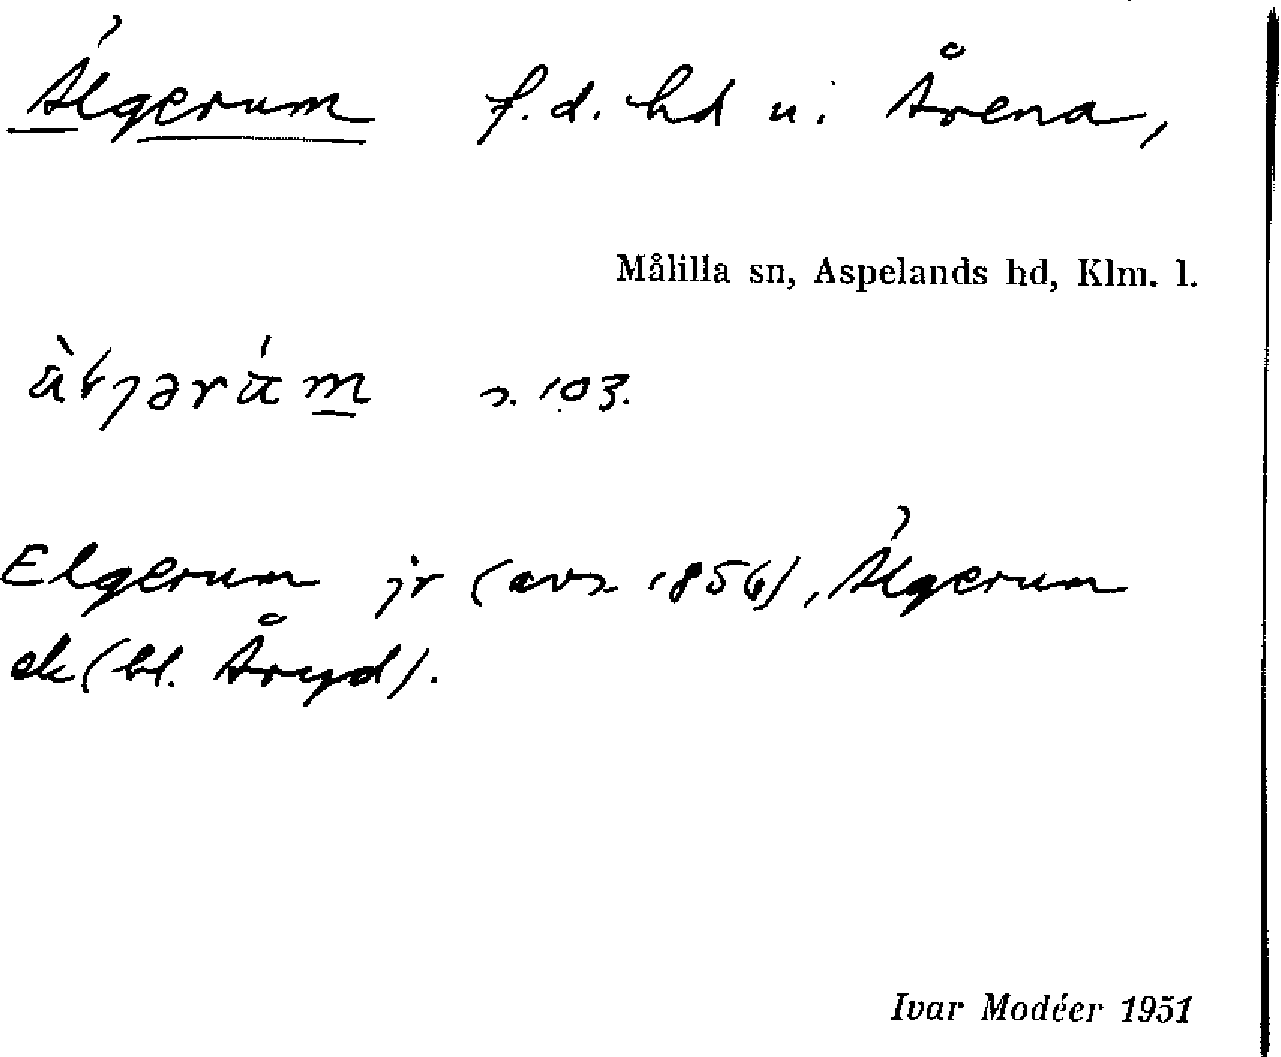 Älgerum f.d. hd u. Årena,
Målilla sn, Aspelands hd, Klm. l.
s. 103.
Elgerum jr (avs 1856), Älgerum
ek (bl. Åryd).
Ivar Modéer 1951